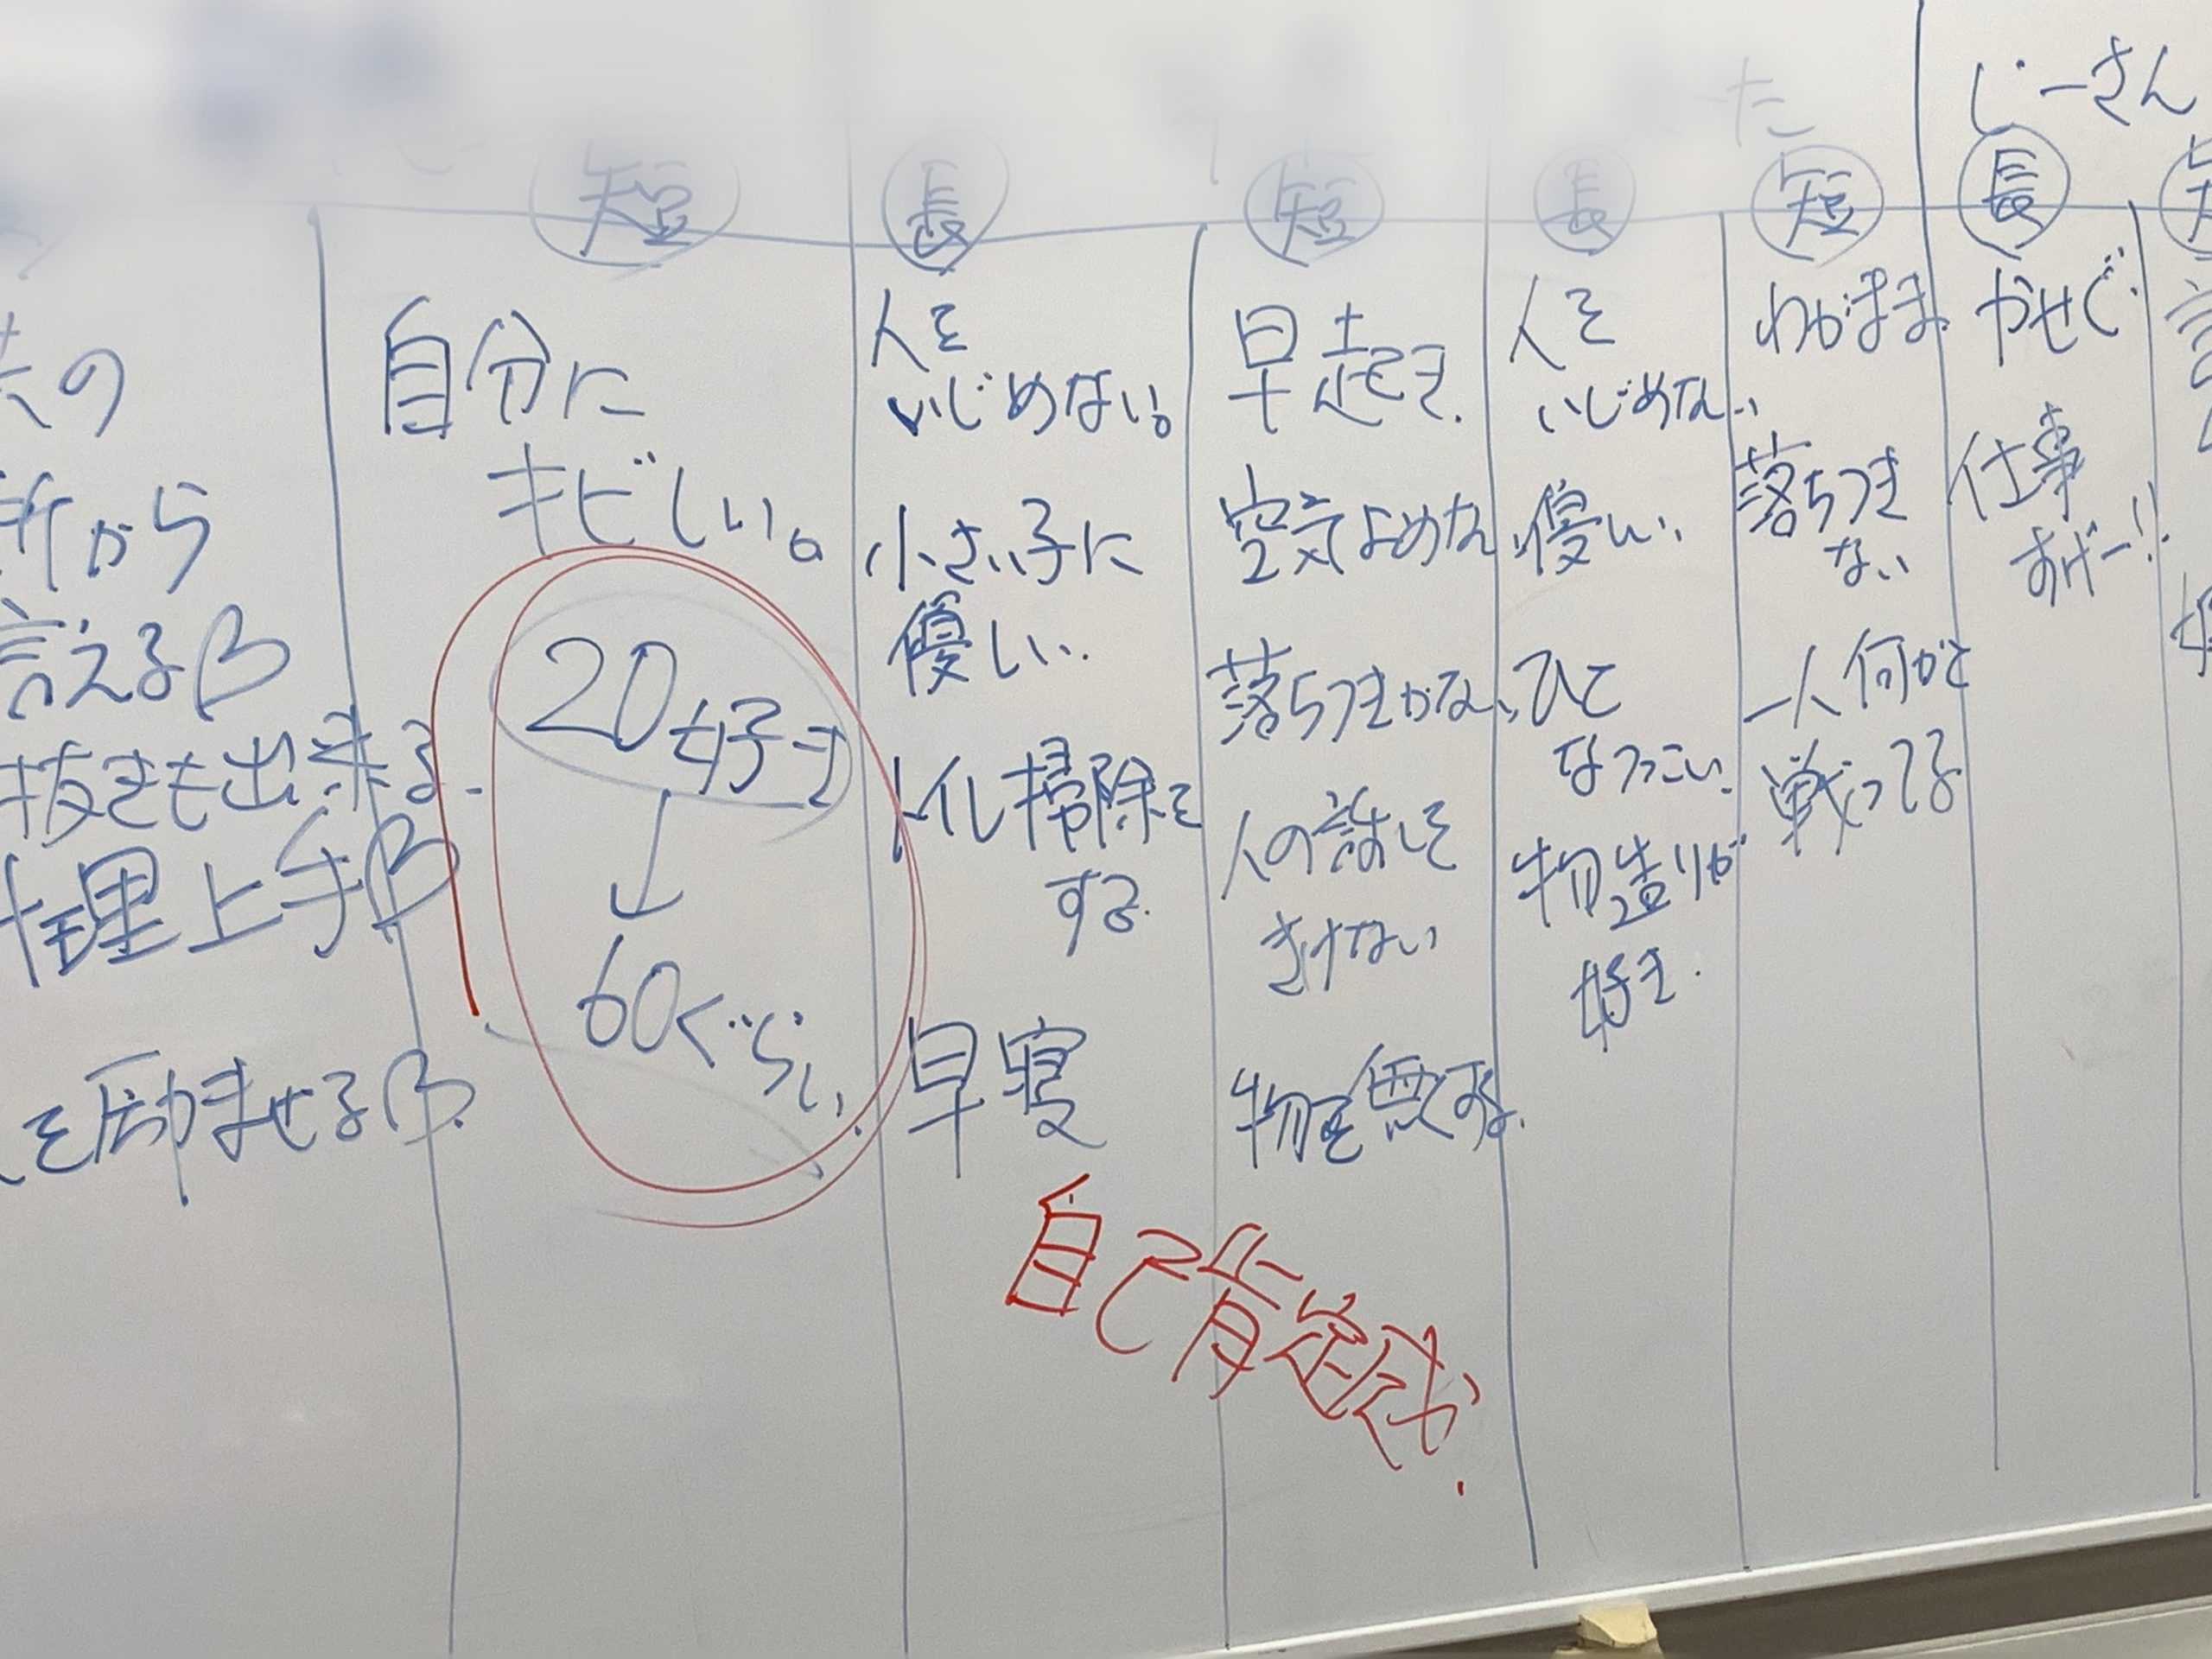 じーさん
短
長
短
長
短
長
の
から
言える
抜きも出来る
理上手
を励ませる
自分に
キビしい。
20好き
↓
60くらい
人を
いじめない。
小さい子に
優しい.
トイレ掃除を
する.
早寝
早起き.
空気よめない
落ちつきがない
人の話しを
きけない
物を無くする.
人を
いじめない
優しい
ひと
なつっこい.
物造りが
好き.
わがまま
落ちつき
ない
一人何かと
戦ってる
かせぐ
仕事
すげー!!
自己肯定感.